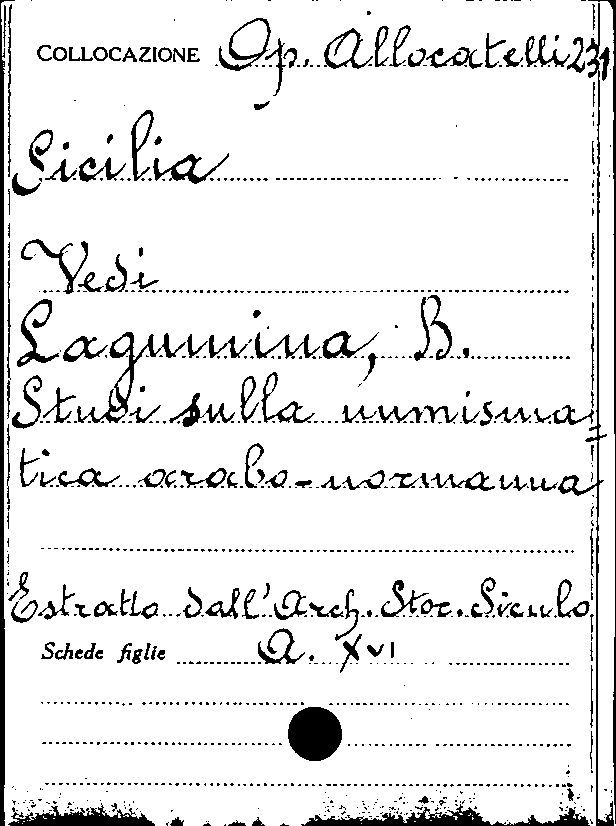 COLLOCAZIONE Op. Allocatelli 231
Sicilia
Vedi
Lagumina, B.
Studi sulla numisma=
tica arabo-normanna
Estratto dall'Arch. Stor. Siculo
Schede figlie A. XVI